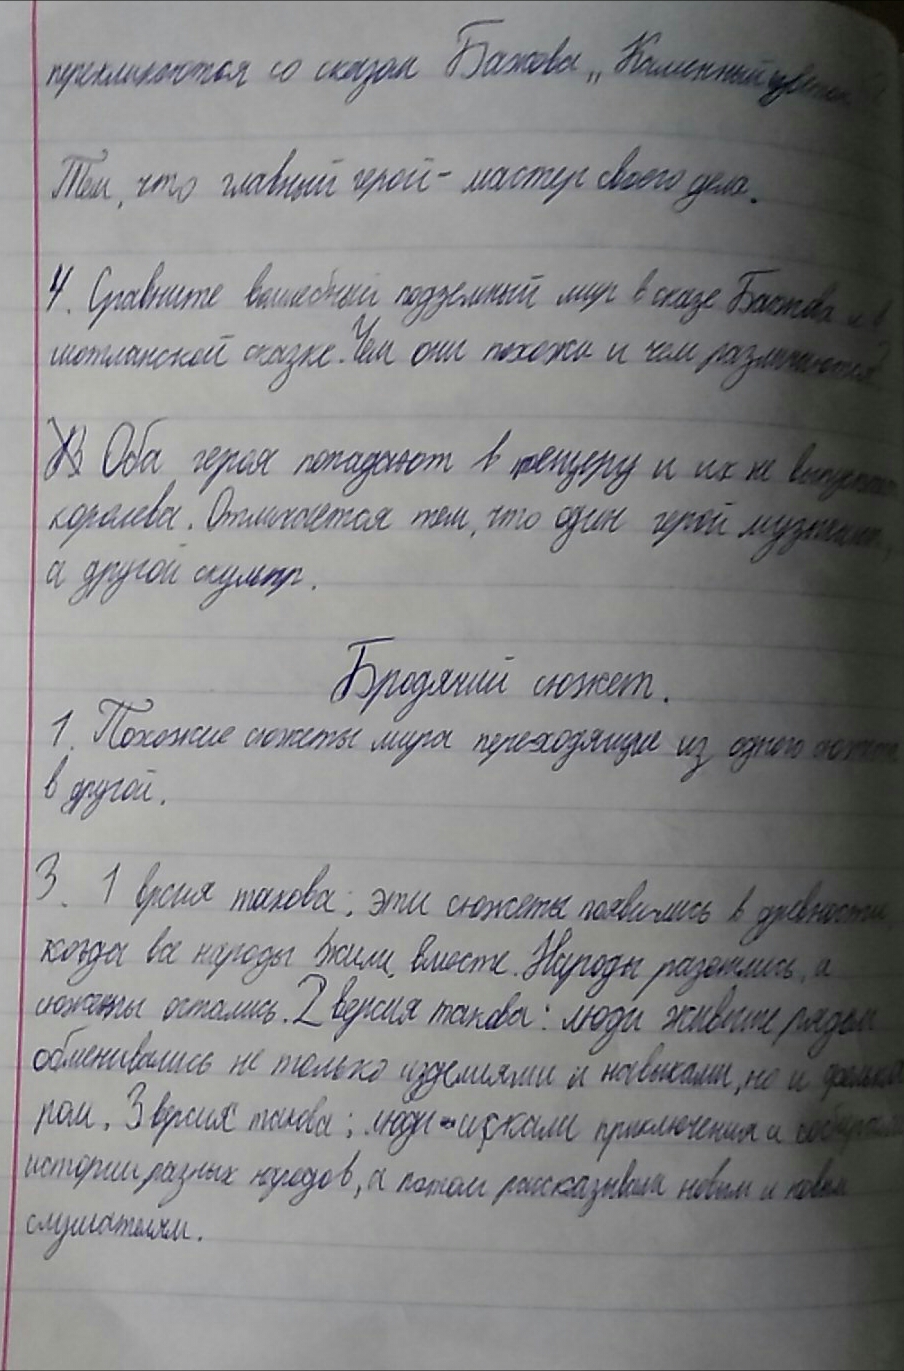 перекликаются со сказом Бажова „Каменный цветок"
Тем, что главный герой - мастер своего дела.
4. Сравните волшебный подземный мир в сказе Бажова и в
шотланской сказке. Чем они похожи и чем различаются?
Оба героя попадают в пещеру и их не выпускает
королева. Отличается тем, что один герой музыкант,
а другой скульпр.
Бродячий сюжет.
1. Похожие сюжеты мира переходящие из одного сюжета
в другой.
3. 1 врсия такова: эти сюжеты появились в древности,
когда все народы жили вместе. Народы разошлись, а
сюжеты остались. 2 версия такова: люди живыше рядом
обменивались не только изделиями и навыками, но и фолькло
ром. 3 версия такова: люди искали приключения и собирали
истории разных народов, а потом рассказывали новым и новым
слушателям.